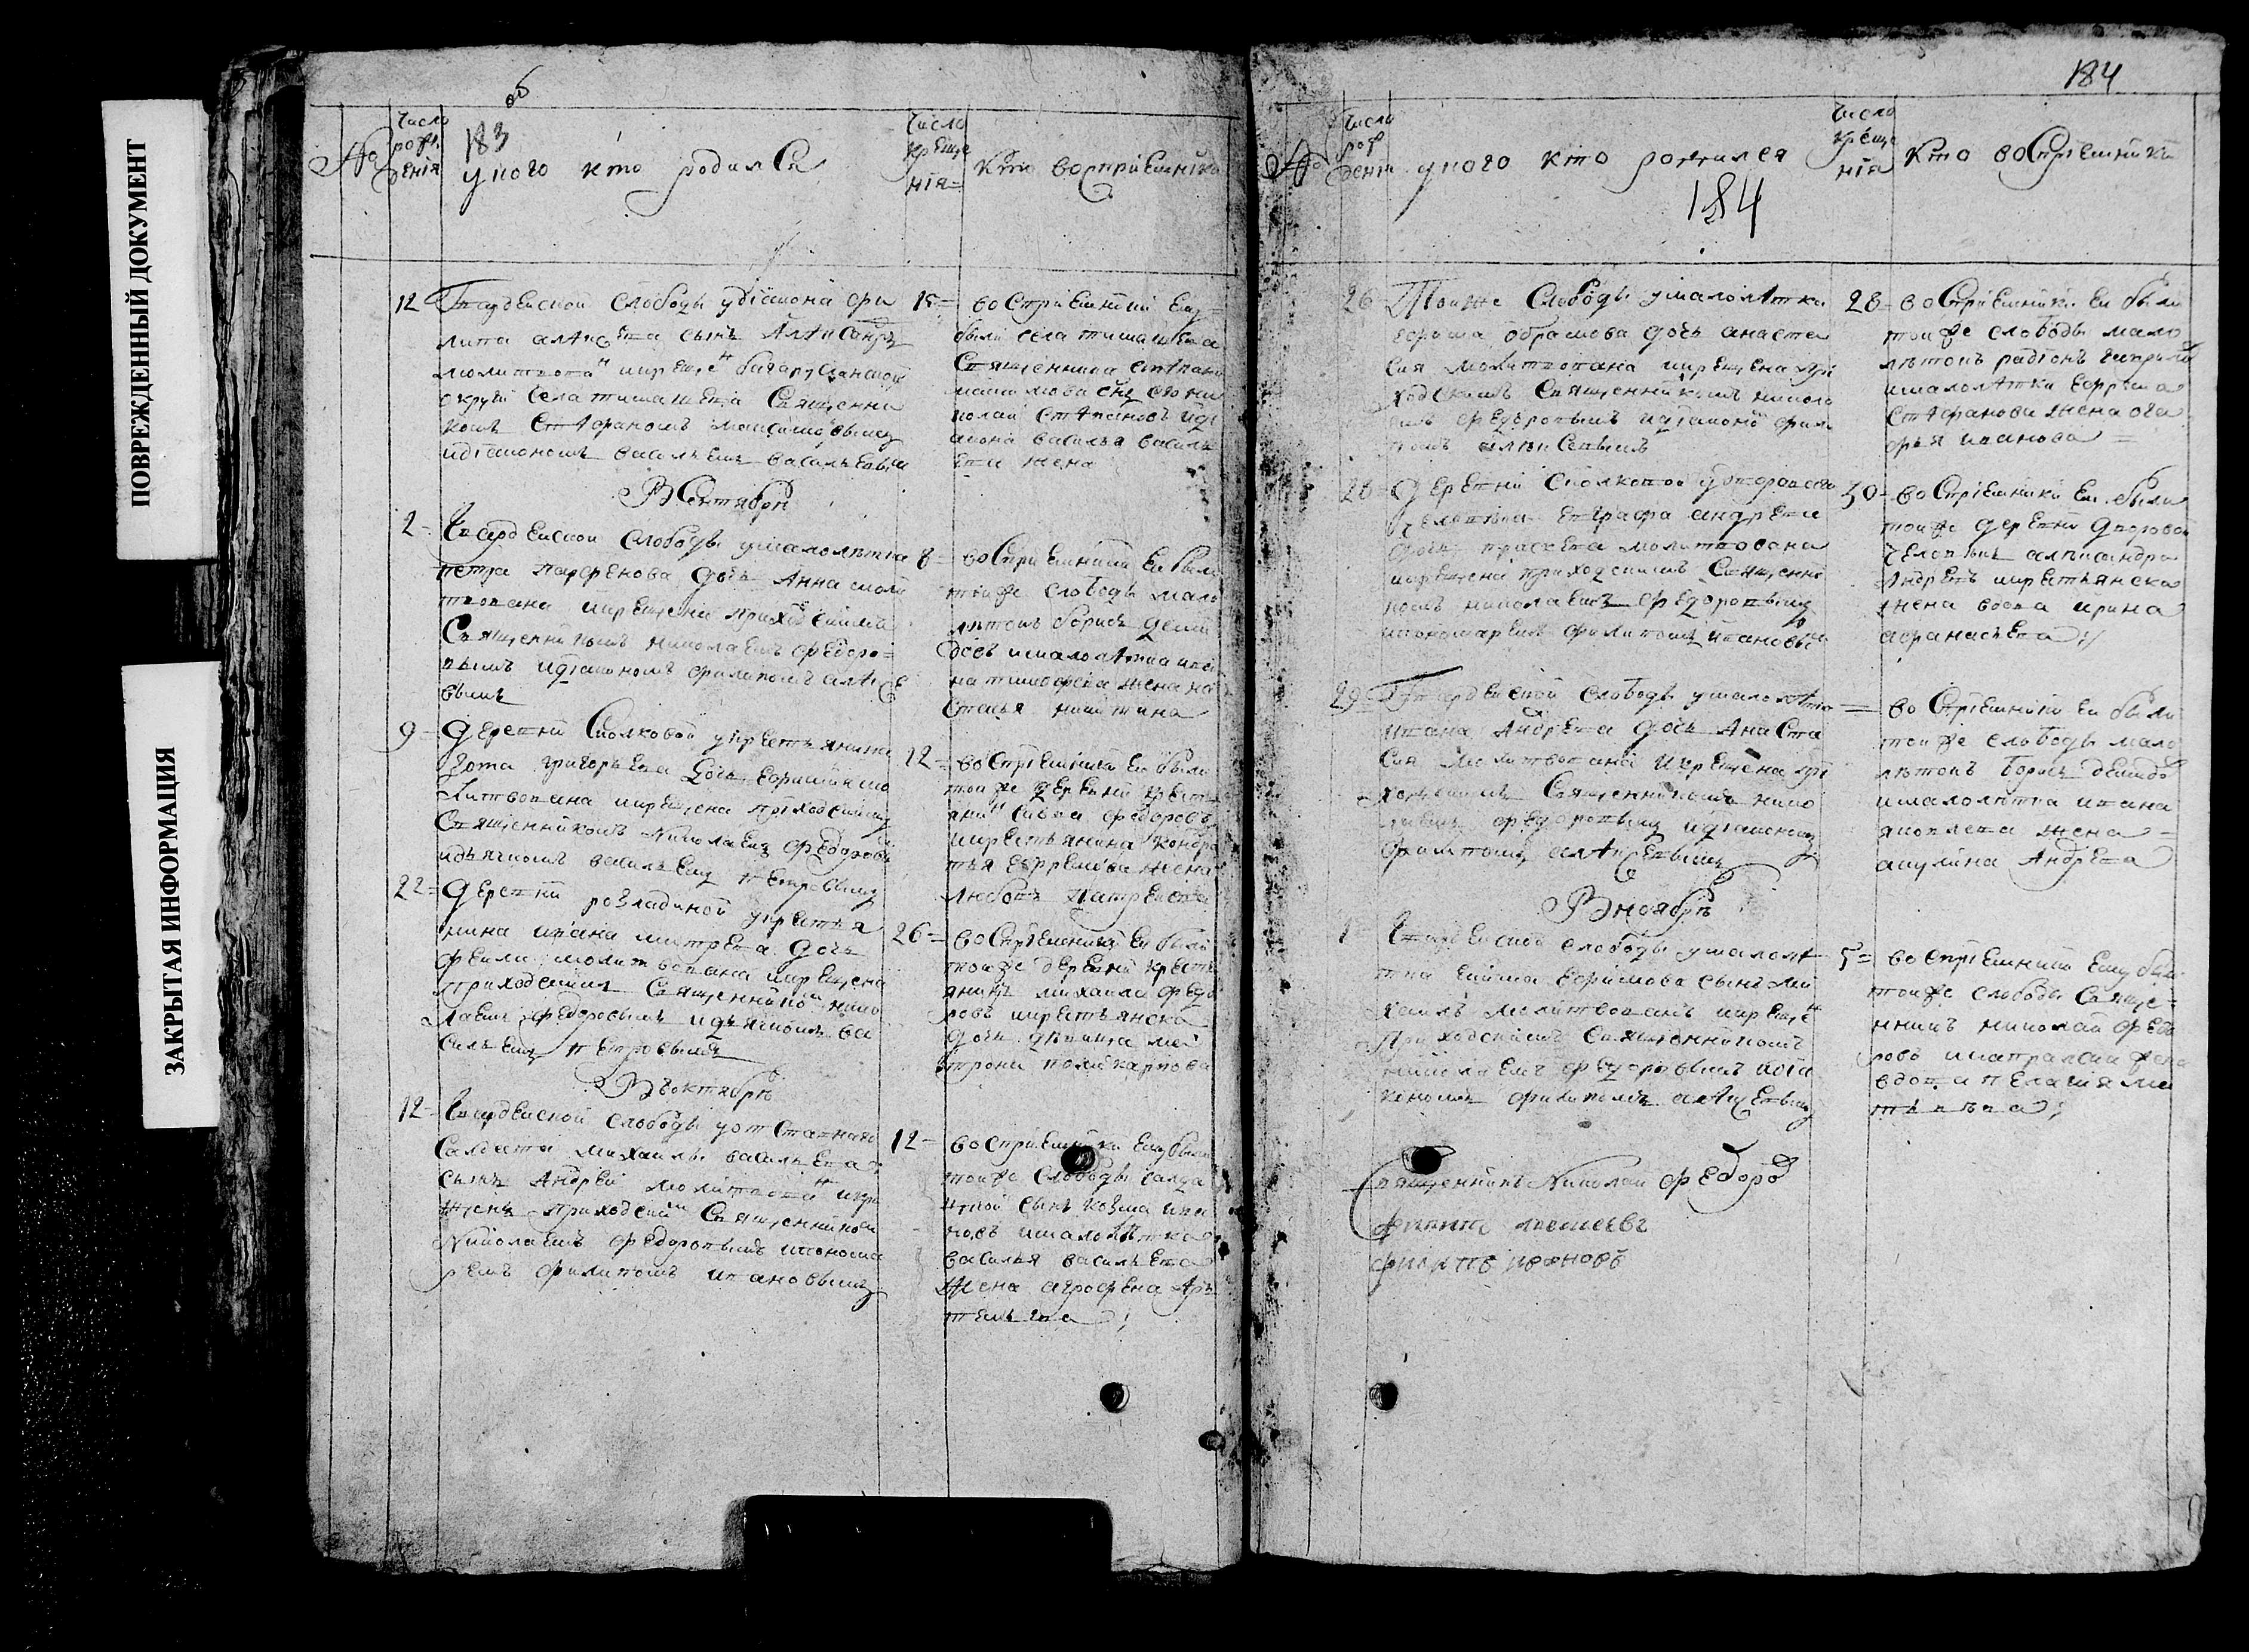 ПОВРЕЖДЕННЫЙ ДОКУМЕНТ
ЗАКРЫТАЯ ИНФОРМАЦИЯ
об
183
№
Число рож дения
у кого кто родился
Число креще ния =
Кто восприемники
12
Твардейской слободы у диакона фи
липа алексеева сынъ Александръ
молитвован и крещен
округи села тимашева священни
комъ Стефаномъ
и диакономъ васильемъ васильевым
15 =
восприемники ему
были села тимашева
священника
сын его ни
колай Степановъ и ди
акона василья василь
ева жена
В Сентябри
2 -
слободы у малолетка
петра парфенова дочь Анна моли
твована и крещена приходскимъ
Священникомъ николаемъ федоро=
вымъ и диакономъ филипомъ алексе
евымъ
8 =
восприемники ей были
той же слободы мало
летокъ борисъ деми
довъ и малолетка ива
на тимофеева жена на
стасья никитина
9 -
Деревни Сколковой у крестьянина
Зота григорьева дочь Ефимия мо
литвована и крещена приходскимъ
Священникомъ Николаемъ федоровы
и дьячкомъ васильемъ петровымъ
12 =
восприемники ей были
той же деревни кресть
янин сава федоровъ
и крестьянина кондра
тья ефремова жена
любовь
22 =
Деревни розладиной у крестья
нина ивана митрева дочь
молитвована и крещена
приходскимъ Священником нико
лаемъ федоровымъ и дьячкомъ ва
сильемъ петровымъ
26 =
восприемники ей были
той же деревни кресть
янинъ михайла федо
ровъ и крестьянска
дочь девка ма
трона поликарпова
В октябре
12 =
слободы у отставнаго
Салдата михайлы васильева
сынъ Андрей молитвован и кре
щенъ приходским Священником
Николаемъ федоровымъ и понома
ремъ филипомъ ивановымъ
12 -
восприемники ему были
той же слободы салда
цкой сынъ козма ива
новъ и малолетка
василья васильева
жена агрофена Ар
темьева ;
184
№
Число рож дения
у кого кто родился
184
Число креще ния
Кто восприемники
26
Той же Слободы у малолетка
дочь анаста
сия молитвована и крещена при
ходскимъ Священникомъ никола
емъ федоровымъ и диакономъ фили
помъ алексеевымъ
28 =
восприемники ей были
той же слободы мало
летокъ радионъ
и малолетка ефрема
Стефанова жена
ивановa =
28 =
деревни Сколковой у дворовова
человека евграфа андреева
дочь праскева молитвована
и крещена приходскимъ Священни
комъ николаемъ федоровымъ
и пономаремъ филипомъ ивановым
30 =
восприемники ей были
той же деревни дворовой
человекъ александра
Андреевъ и крестьянска
жена вдова ирина
афанасьева :/
29 =
слободы у малолетка
ивана Андреева дочь Анаста
сия молитвована и крещена при
ходскимъ Священникомъ нико
лаемъ федоровымъ и диакономъ
филипомъ алексеевымъ
=
восприемники ей были
той же слободы мало
летокъ борисъ демидо
и малолетка ивана
яковлева жена =
акулина Андреева
В ноябре
1 -
слободы у малоле
тка ефимова сынъ ми
хаилъ молитвованъ и крещен
приходскимъ Священникомъ
николаемъ федоровымъ и диа
кономъ филипомъ алексеевымъ
5 =
восприемники ему были
той же слободы Свяще=
нникъ николай федо
ровъ
вдова пелагия ма
;
Священникъ Николай федоро
филипъ алексеевъ
филипъ ивановъ